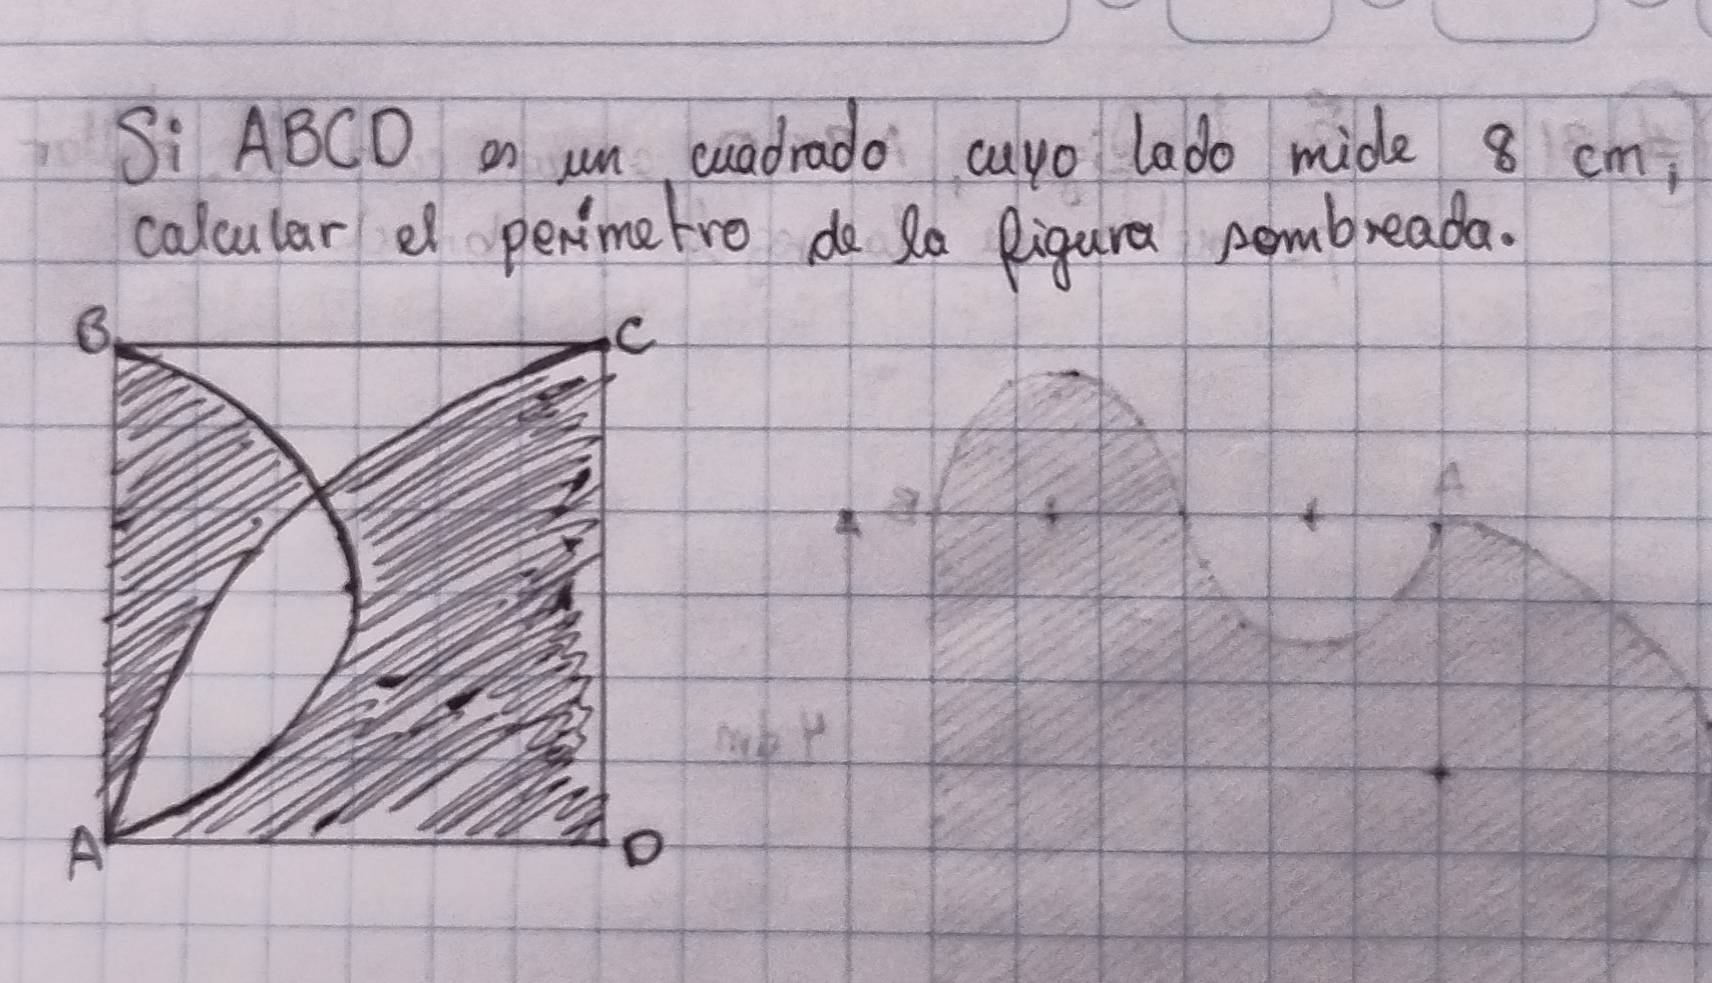 Si ABCD es un cuadrado cuyo lado mide 8 cm,
calcular el perímetro de la figura sombreada.
B
C
A
A
D